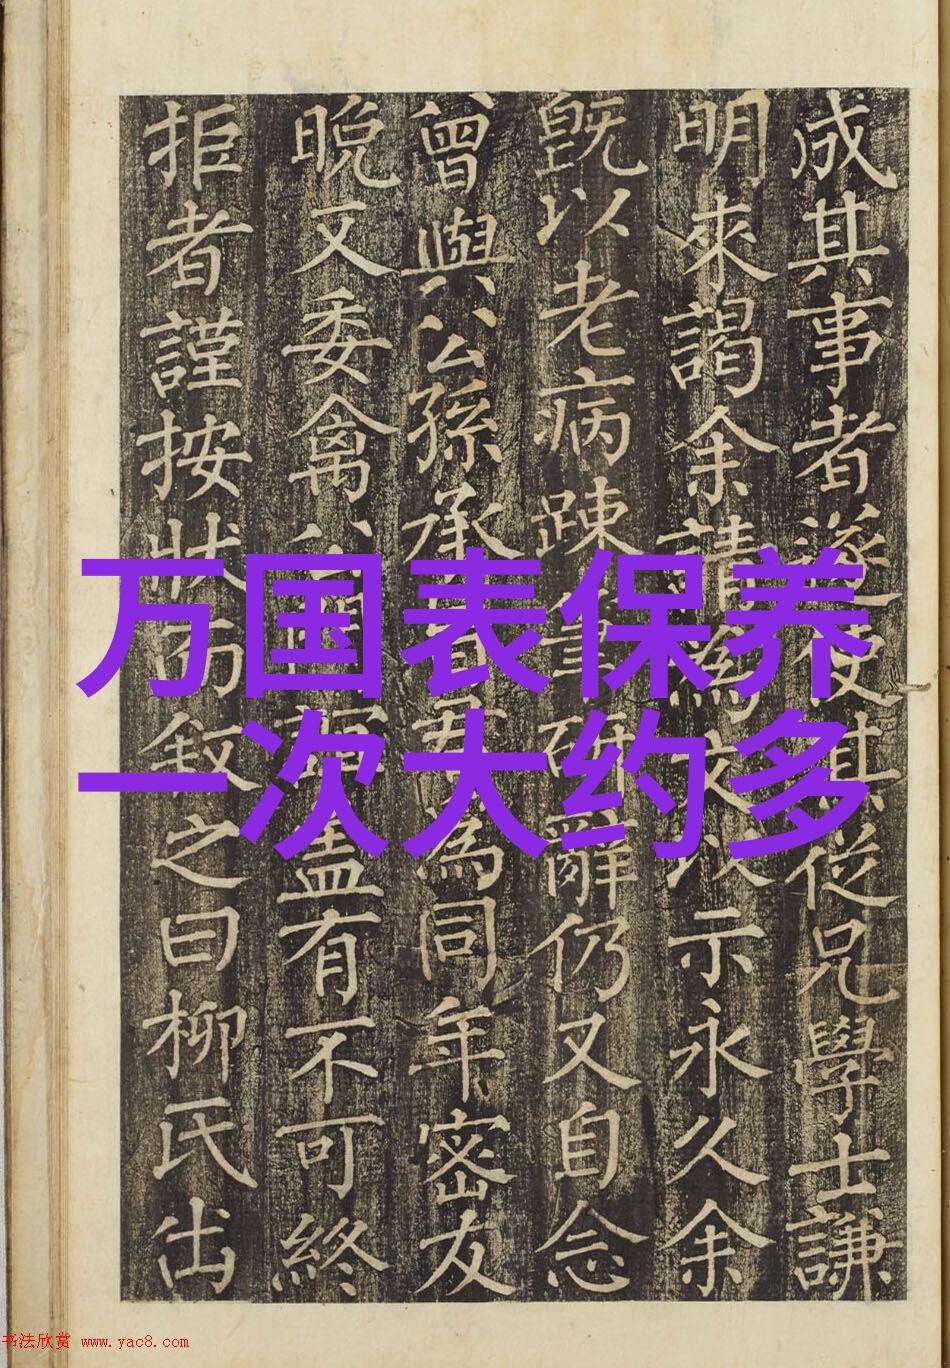 成其事者遂使其從兄學士謙
明來謁余請為文以示永久余
既以老病踈筆研辭仍又自念
曾與公孫承旨君為同年密友
晚又委禽公盖有不可終
拒者謹按狀而敘之曰柳氏出
万国表保养
一次大约多
书法欣赏 www.yac8.com